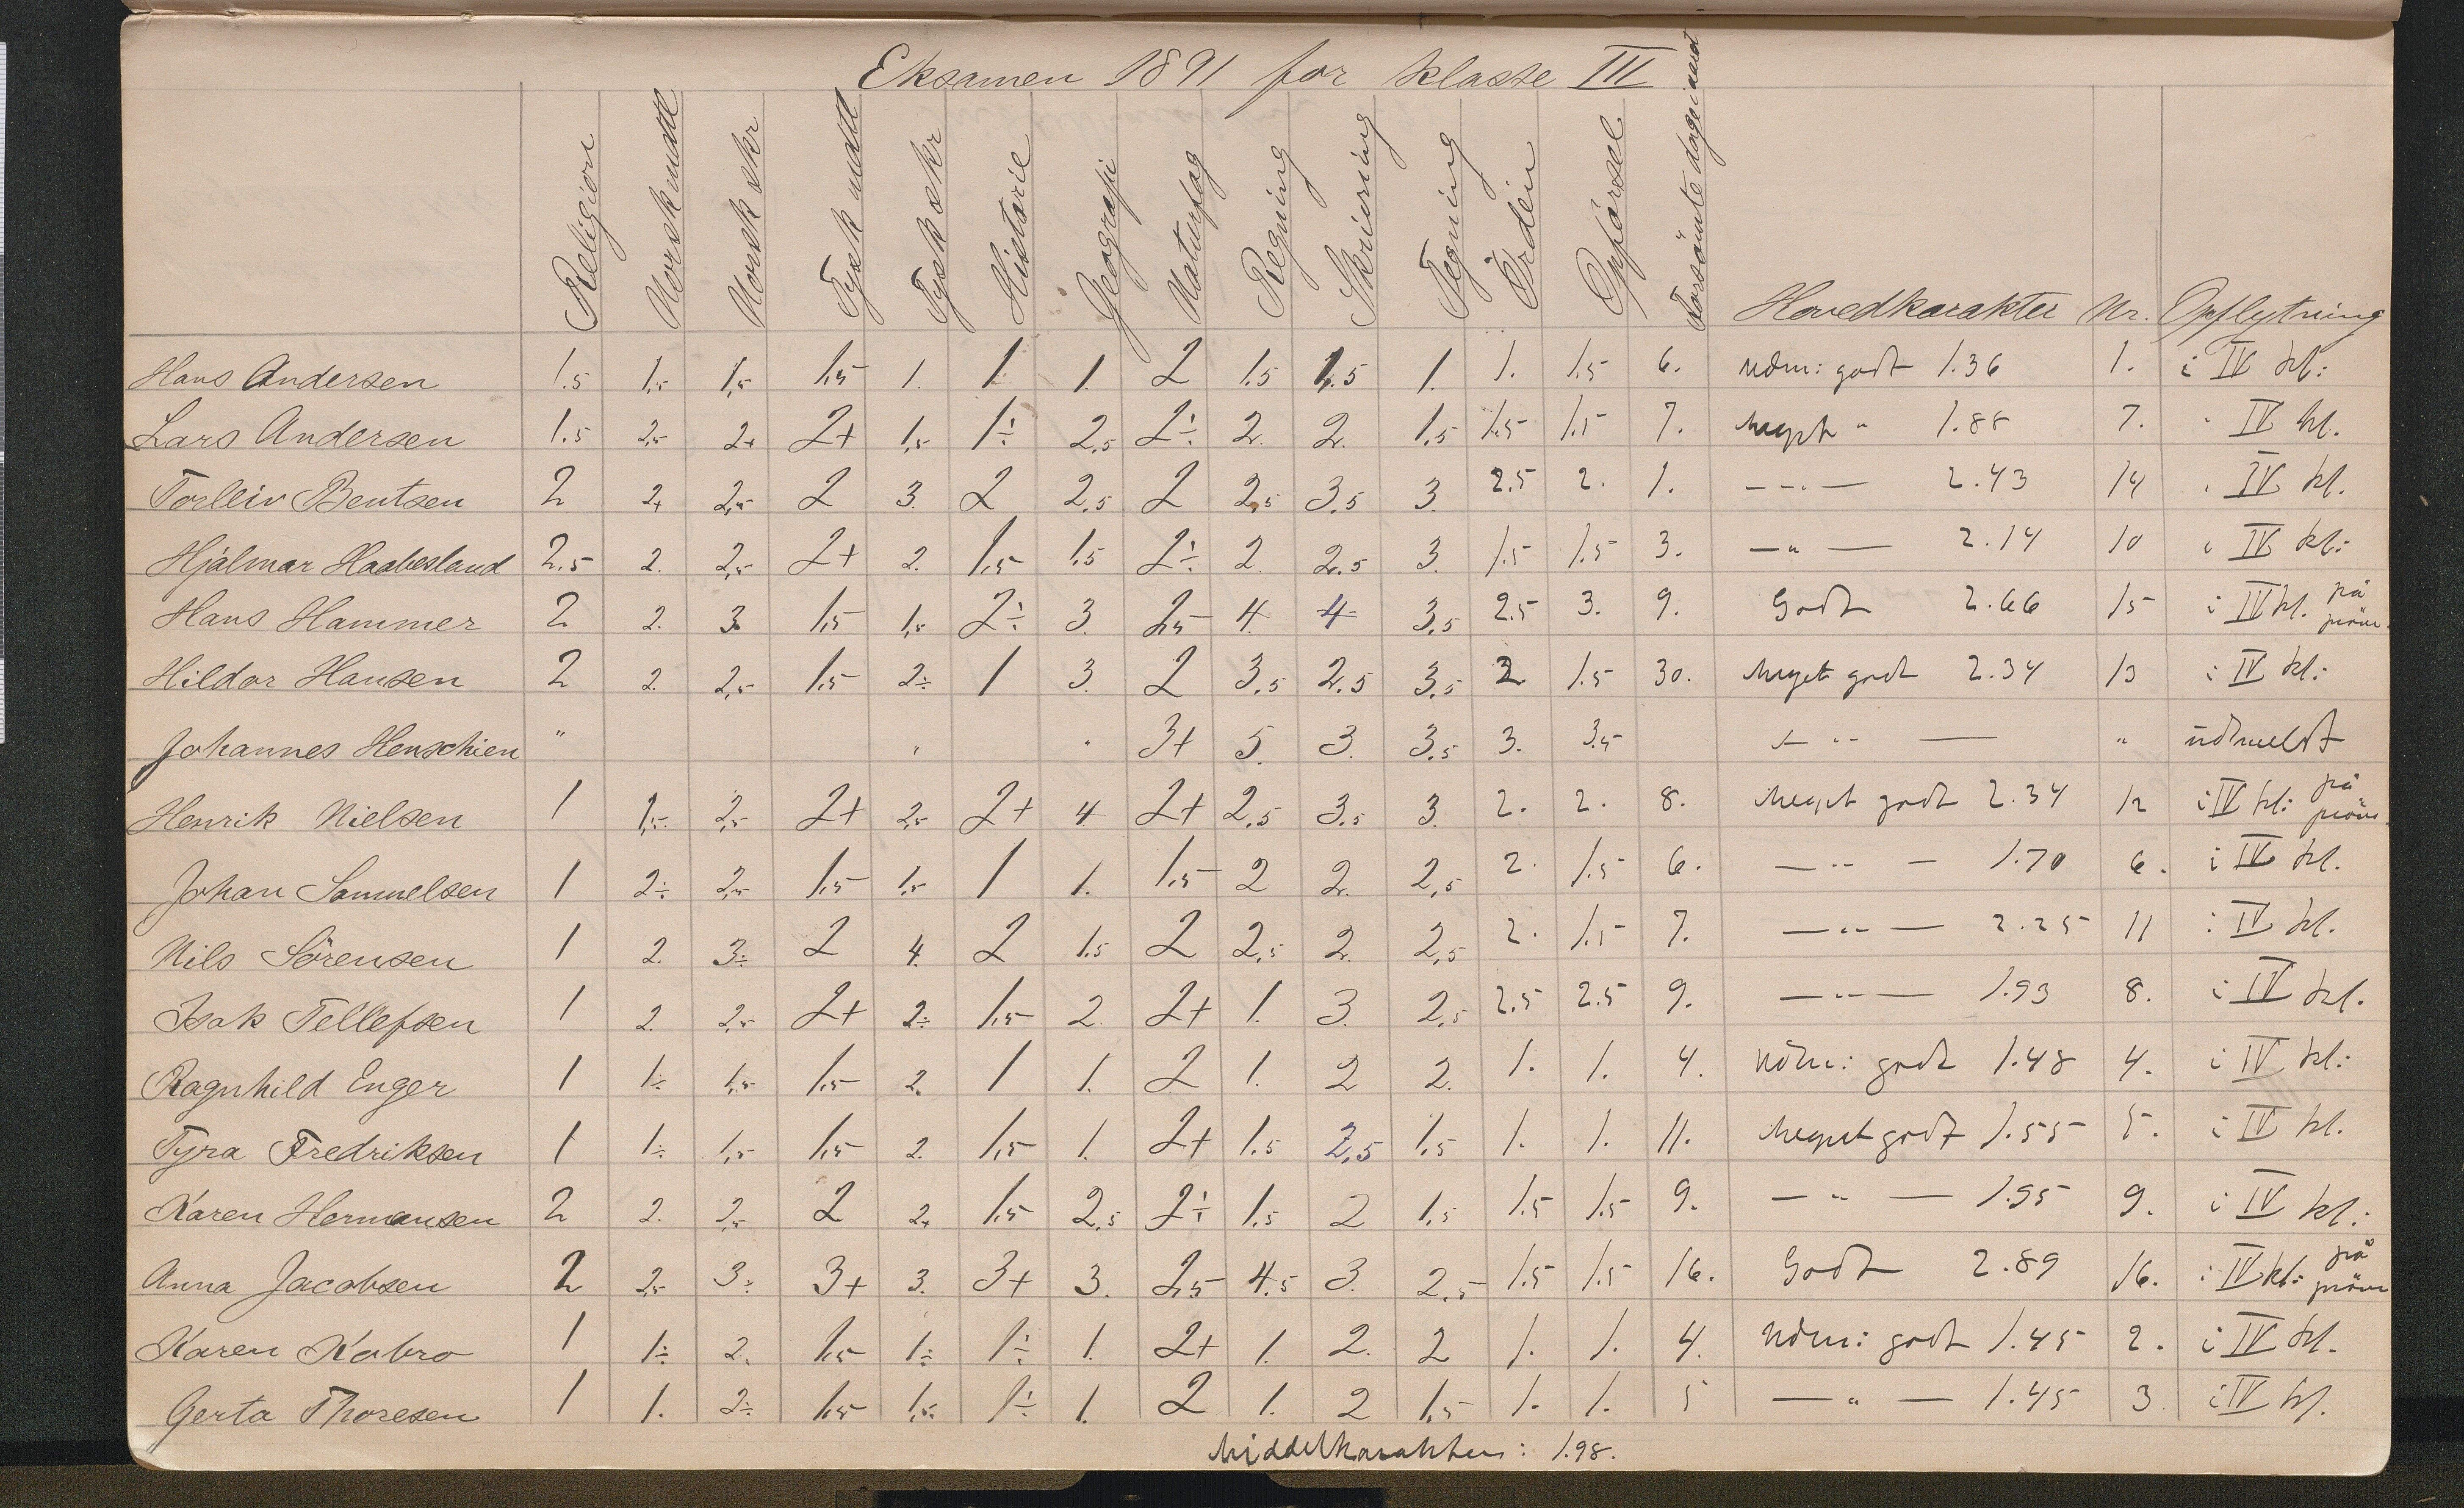 Eksamen 1891 for klasse III
Religion Norsk mdtl Norsk skr Tysk mdtl Tysk skr Historie Geografi Naturfag Regning Skrivning Tegning Orden Opførsel Forsömte dage Hovedkarakter Nr. Opflytning
Hans Andersen 1.5 1,5 1,5 1,5 1. 1 1. 2 1.5 1.5 1. 1. 1.5 6. udm: godt 1.36 1. i IV kl:
Lars Andersen 1.5 2,5 2+ 2+ 1,5 1÷ 2,5 2÷ 2. 2. 1.5 1.5 1.5 7. meget " 1.88 7. " IV kl.
Torleiv Bentsen 2 2+ 2,5 2 3. 2 2,5 2 2,5 3.5 3. 2.5 2. 1. — " — 2.43 14 i IV kl.
Hjálmar Haabesland 2.5 2. 2,5 2+ 2. 1,5 1.5 2÷ 2. 2.5 3. 1.5 1.5 3. — " — 2.14 10 i IV kl:
Hans Hammer 2 2. 3. 1,5 1,5 2÷ 3. 2,5 4. 4 3,5 2.5 3. 9. Godt 2.66 15 i IV kl. på pröve
Hildor Hansen 2 2. 2,5 1,5 2÷ 1 3. 2 3,5 2.5 3,5 2 1.5 30. meget godt 2.34 13 i IV kl:
Johannes Henschien " 3+ 5. 3. 3,5 3. 3.5 — " — " üdmeldt
Henrik Nielsen 1 1,5 2,5 2+ 2,5 2+ 4 2+ 2,5 3.5 3. 2. 2. 8. meget godt 2.34 12 i IV kl: på pröve
Johan Samuelsen 1 2÷ 2,5 1,5 1,5 1 1. 1,5 2 2. 2,5 2. 1.5 6. — " — 1.70 6. i IV kl.
Nils Sörensen 1 2. 3÷ 2 4. 2 1.5 2 2,5 2. 2,5 2. 1.5 7. — " — 2.25 11 i IV kl.
Isak Tellefsen 1 2. 2,5 2+ 2÷ 1,5 2. 2+ 1. 3. 2,5 2.5 2.5 9. — " — 1.93 8. i IV kl.
Ragnhild Enger 1 1÷ 1,5 1,5 2. 1 1. 2 1. 2 2. 1. 1. 4. udm: godt 1.48 4. i IV kl:
Tyra Fredriksen 1 1÷ 1,5 1,5 2. 1,5 1. 2+ 1.5 2,5 1.5 1. 1. 11. meget godt 1.55 5. i IV kl.
Karen Hermansen 2 2. 2,5 2 2+ 1,5 2,5 2÷ 1,5 2 1,5 1.5 1.5 9. — " — 1.95 9. i IV kl.:
Anna Jacobsen 2 2,5 3÷ 3+ 3. 3+ 3. 2,5 4.5 3. 2,5 1.5 1.5 16. Godt 2.89 16. i IV kl: på pröve
Karen Kabro 1 1÷ 2. 1,5 1÷ 1÷ 1. 2+ 1. 2. 2 1. 1. 4. udm: godt 1.45 2. i IV kl.
Gerta Thoresen 1 1. 2÷ 1,5 1,5 1÷ 1. 2 1. 2 1,5 1. 1. 5 — " — 1.45 3. i IV kl.
Middelkarakter: 1.98.